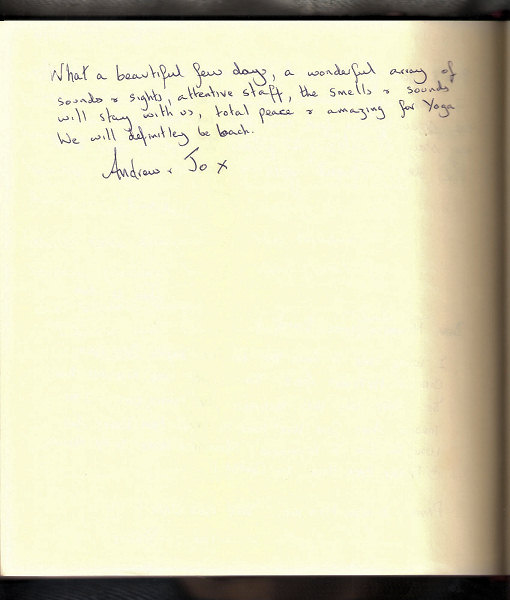 What a beautiful few days, a wonderful array of
sounds & sights, attentive staff, the smells & sounds
will stay with us, total peace & amazing for Yoga
We will definitley be back.
Andrew & Jo x